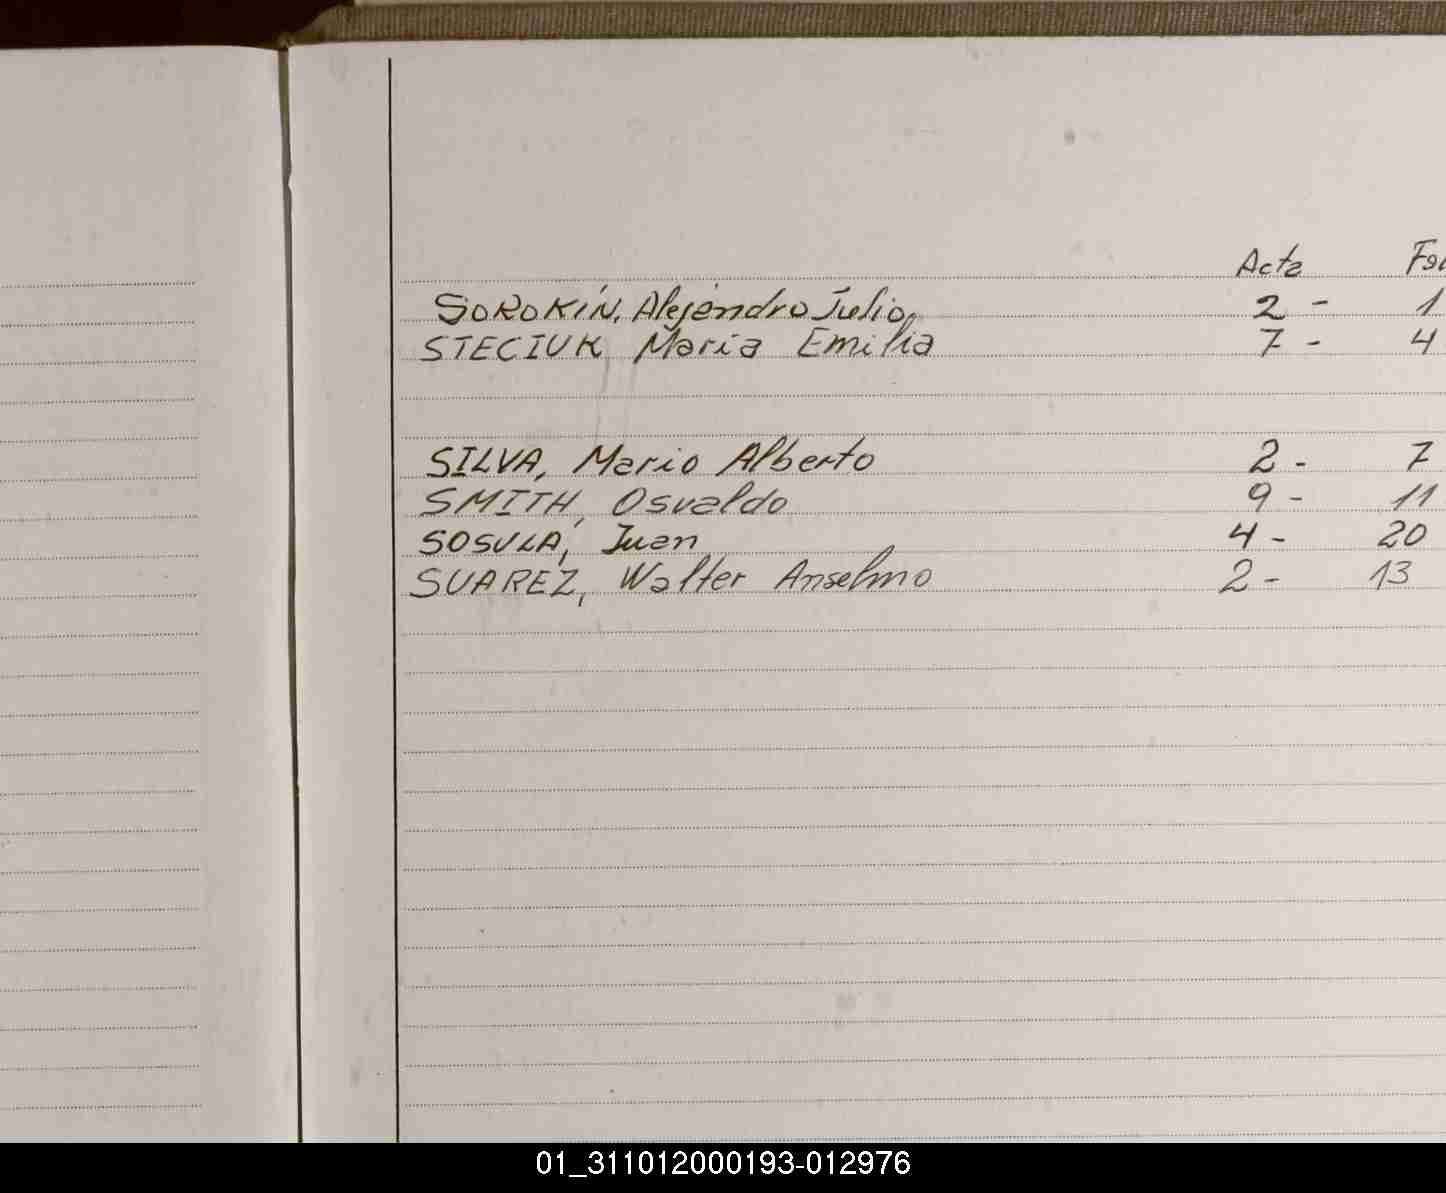 Acta Fo
SOROKIN, Alejandro Julio 2 - 1
STECIUK, Maria Emilia 7 - 4
SILVA, Mario Alberto 2 - 7
SMITH, Osvaldo 9 - 11
SOSULA, Juan 4 - 20
SUAREZ, Walter Anselmo 2 - 13
01_311012000193-012976